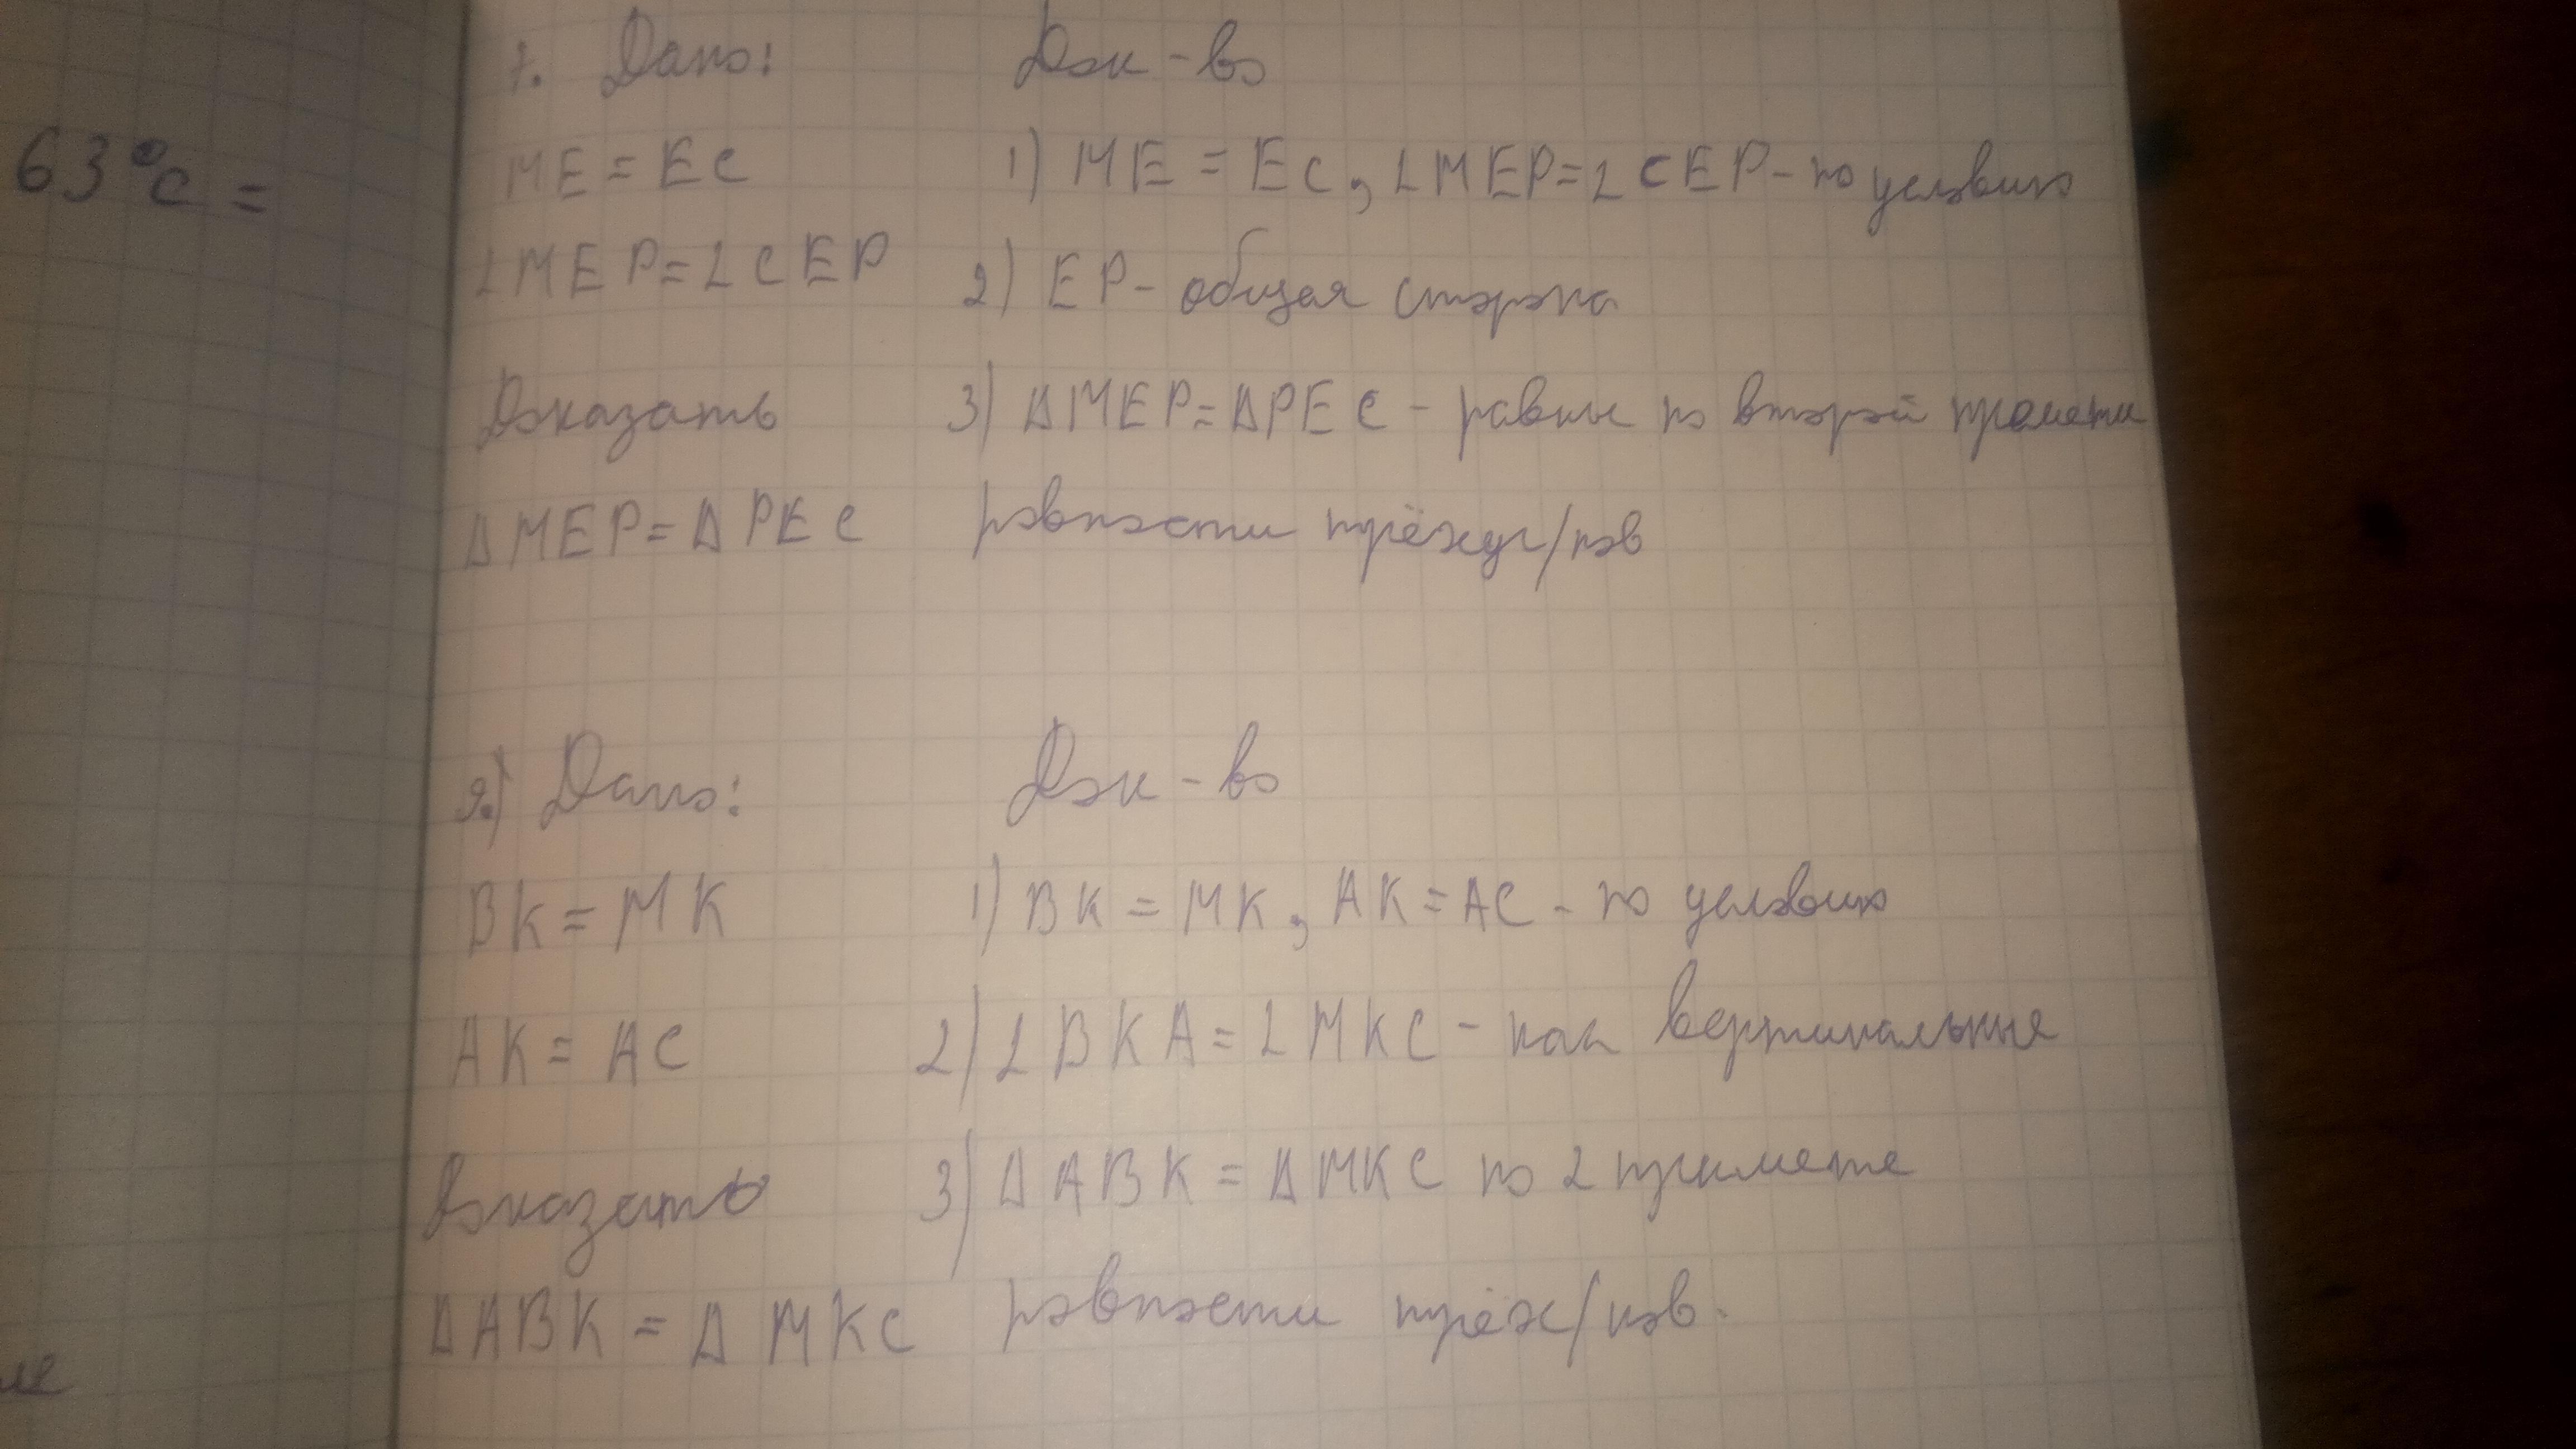 63°C =
1. Дано:
ME = EC
∠MEP=∠CEP
Доказать
ΔMEP=ΔPEC
Док-во
1) ME = EC, ∠MEP=∠CEP-по условию
2) EP- общая сторона
3) ΔMEP=ΔPEC - равны по второй
равности трёхуг/ков
2.) Дано:
BK = MK
AK = AC
Доказать
ΔABK = ΔMKC
Док-во
1) BK = MK, AK = AC - по условию
2) ∠BKA = ∠MKC - как вертикальные
3) ΔABK = ΔMKC по 2
равности трёх/ков.